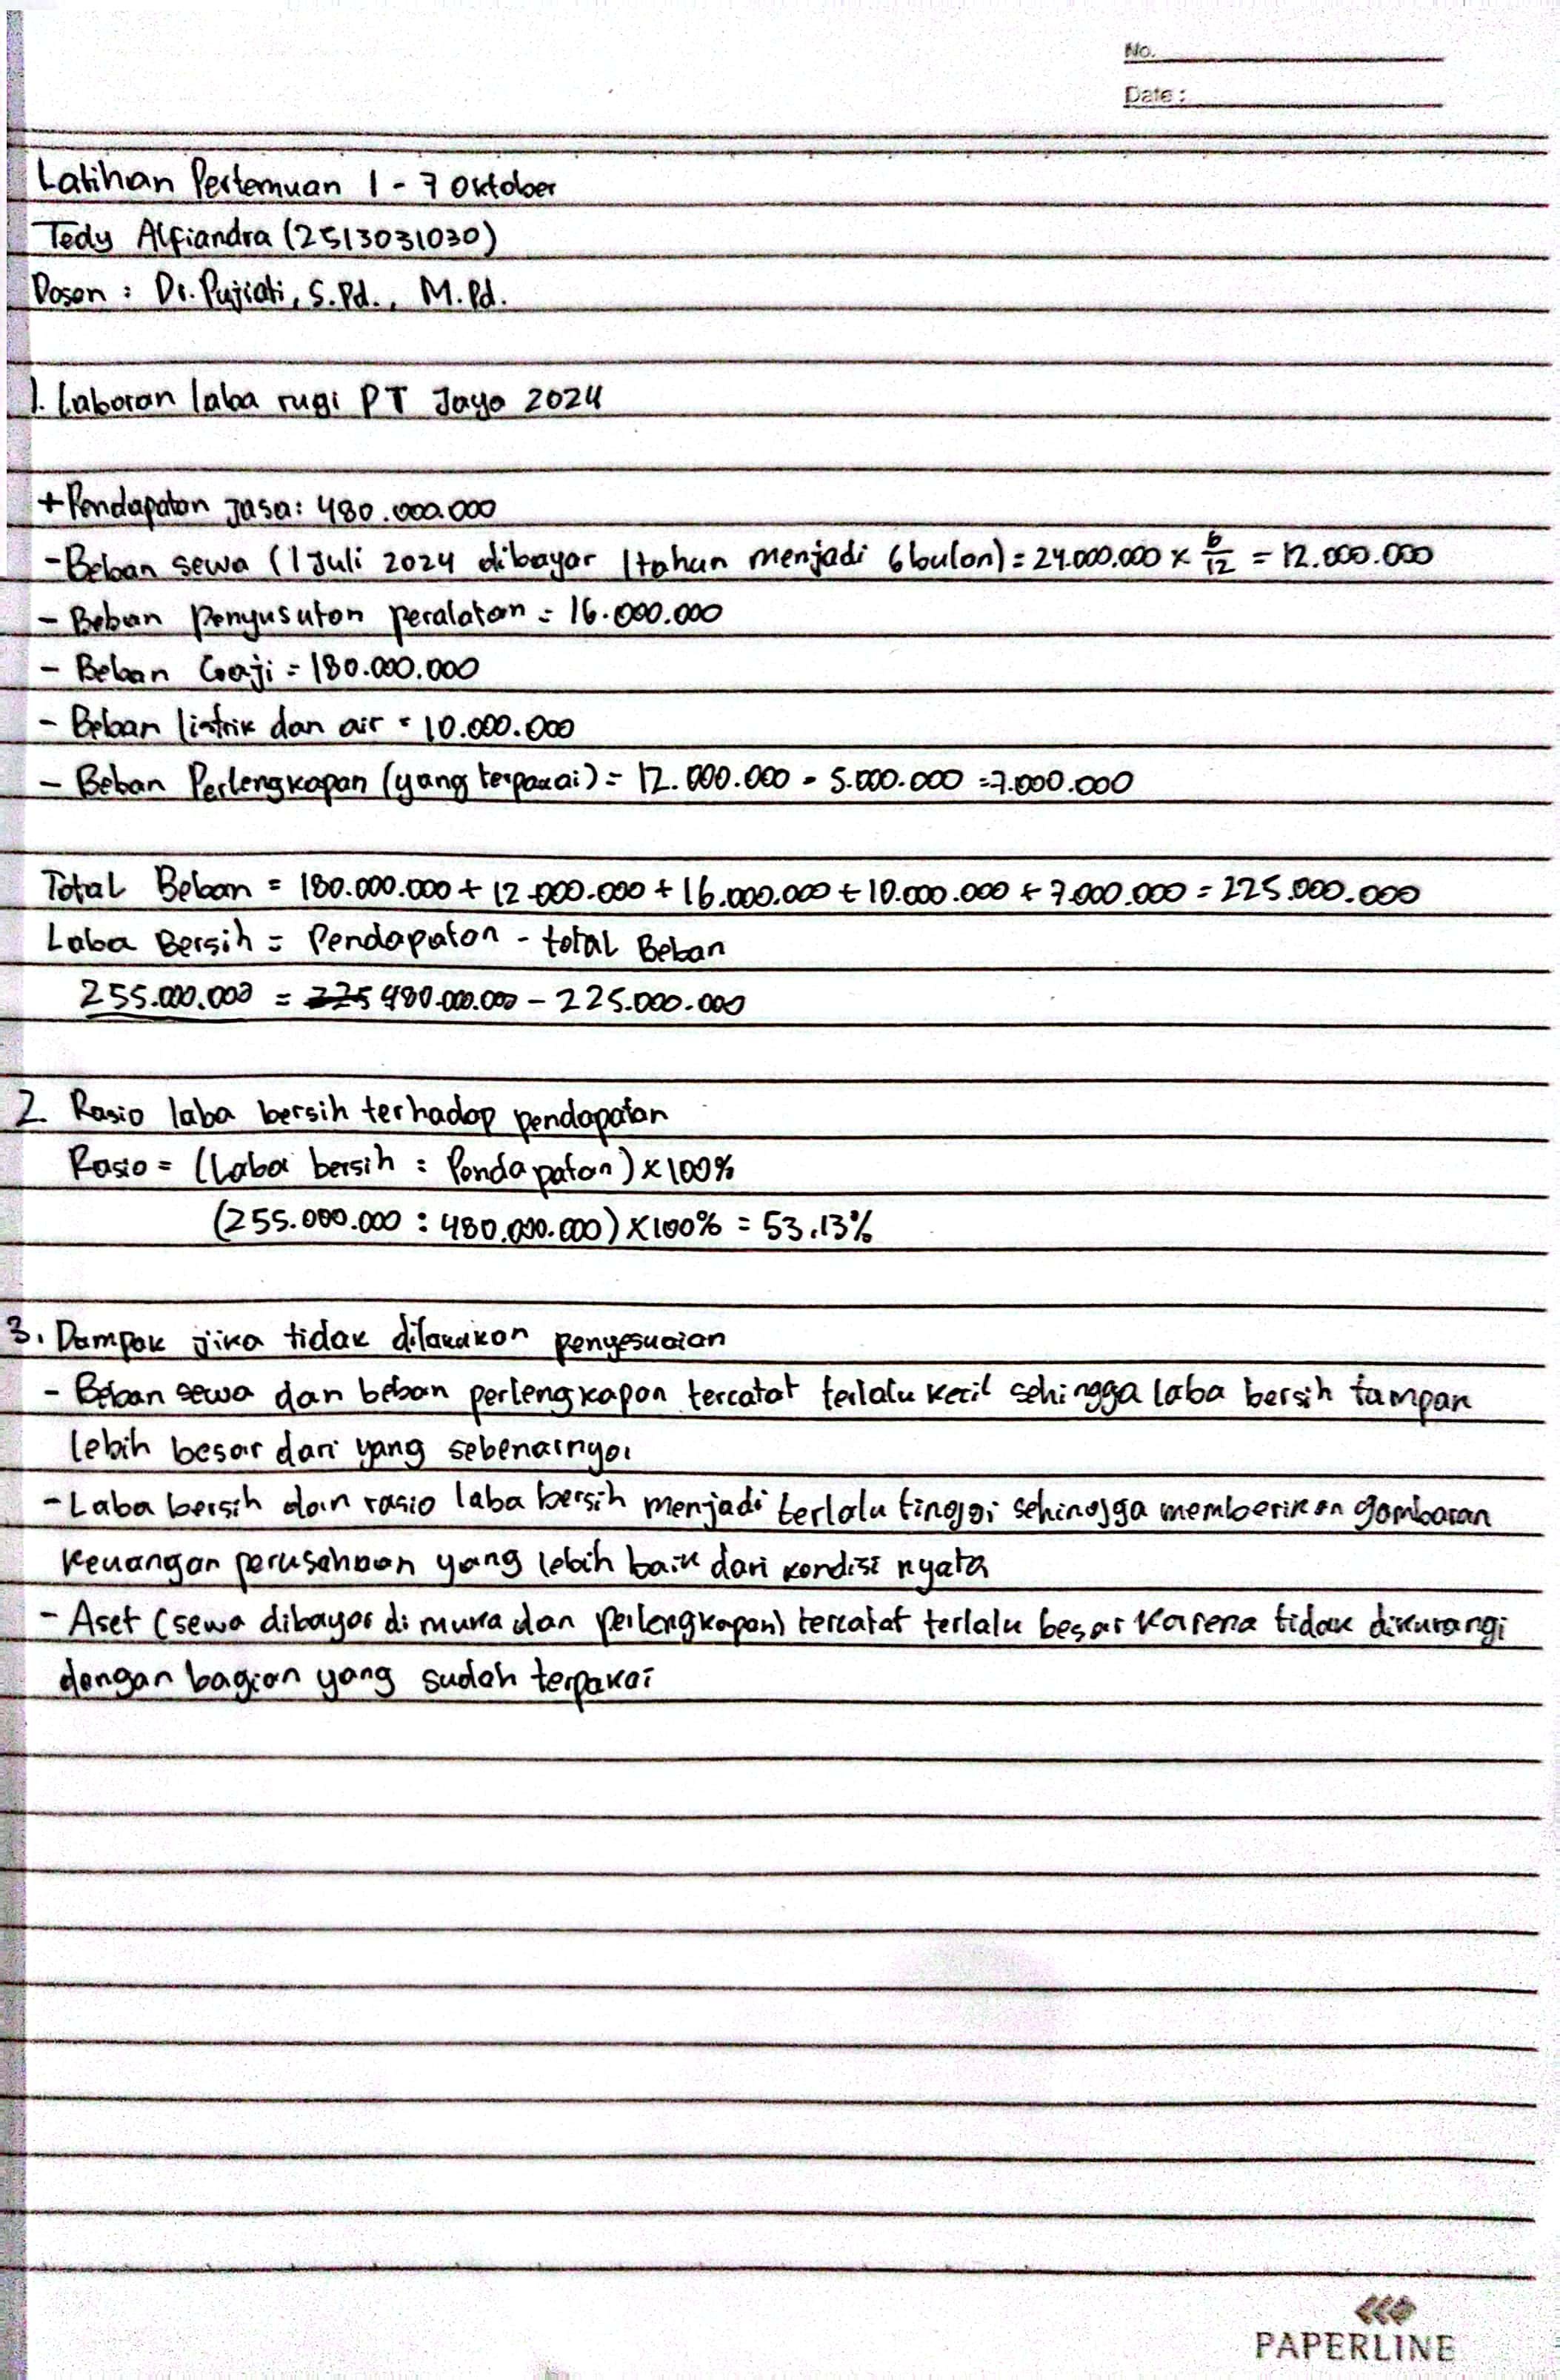 No.
Date :
Latihan Pertemuan 1 - 7 Oktober
Tedy Alfiandra (2513031030)
Dosen : Dr. Pujiati, S.Pd., M.Pd.
1. Laboran laba rugi PT Jaya 2024
+ Pendapatan Jasa : 480.000.000
- Beban sewa (1 Juli 2024 dibayar 1 tahun menjadi 6 bulan) = 24.000.000 x 6/12 = 12.000.000
- Beban Penyusutan peralatan = 16.000.000
- Beban Gaji = 180.000.000
- Beban listrik dan air = 10.000.000
- Beban Perlengkapan (yang terpakai) = 12.000.000 - 5.000.000 = 7.000.000
Total Beban = 180.000.000 + 12.000.000 + 16.000.000 + 10.000.000 + 7.000.000 = 225.000.000
Laba Bersih = Pendapatan - total Beban
255.000.000 = 480.000.000 - 225.000.000
2. Rasio laba bersih terhadap pendapatan
Rasio = (Laba bersih : Pendapatan) x 100%
(255.000.000 : 480.000.000) x 100% = 53,13%
3. Dampak jika tidak dilakukan penyesuaian
- Beban sewa dan beban perlengkapan tercatat terlalu kecil sehingga laba bersih tampak
lebih besar dari yang sebenarnya
- Laba bersih dan rasio laba bersih menjadi terlalu tinggi sehingga memberikan gambaran
keuangan perusahaan yang lebih baik dari kondisi nyata
- Aset (sewa dibayar di muka dan perlengkapan) tercatat terlalu besar karena tidak dikurangi
dengan bagian yang sudah terpakai
PAPERLINE